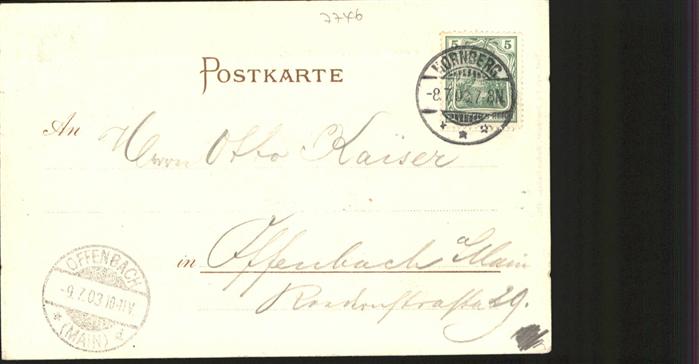 7746
5 5
NÜRNBERG
-8.7.03.7-8N.
POSTKARTE
An
Herrn Otto Kaiser
in Offenbach a Main
29.
OFFENBACH
-9.7.03.10-11V.
* (MAIN) *